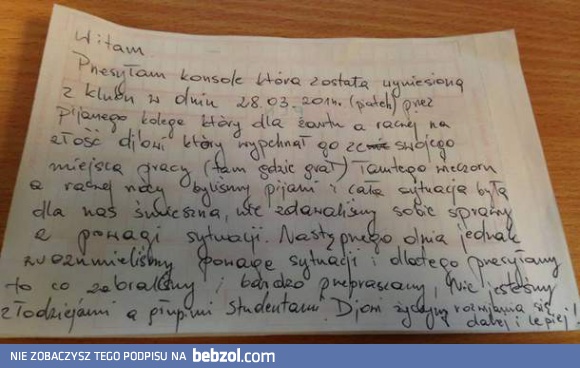 Witam.
Przesyłam konsole która została wyniesioną
z klubu w dniu 28.03.2014r. (piątek) przez
pijanego kolege który dla żartu a raczej na
złość djowi który wypchnął go ze swojego
miejsca pracy (tam gdzie grał) Tamtego wieczoru
a raczej nocy byliśmy pijani i cała sytuacja była
dla nas śmieszna, nie zdawaliśmy sobie sprawy
z powagi sytuacji. Następnego dnia jednak
zrozumieliśmy powagę sytuacji i dlatego przesyłamy
to co zabraliśmy i bardzo przepraszamy, Nie jesteśmy
złodziejami a głupimi studentami. Djowi życzymy rozwijania się
dalej i lepiej!
NIE ZOBACZYSZ TEGO PODPISU NA bebzol.com